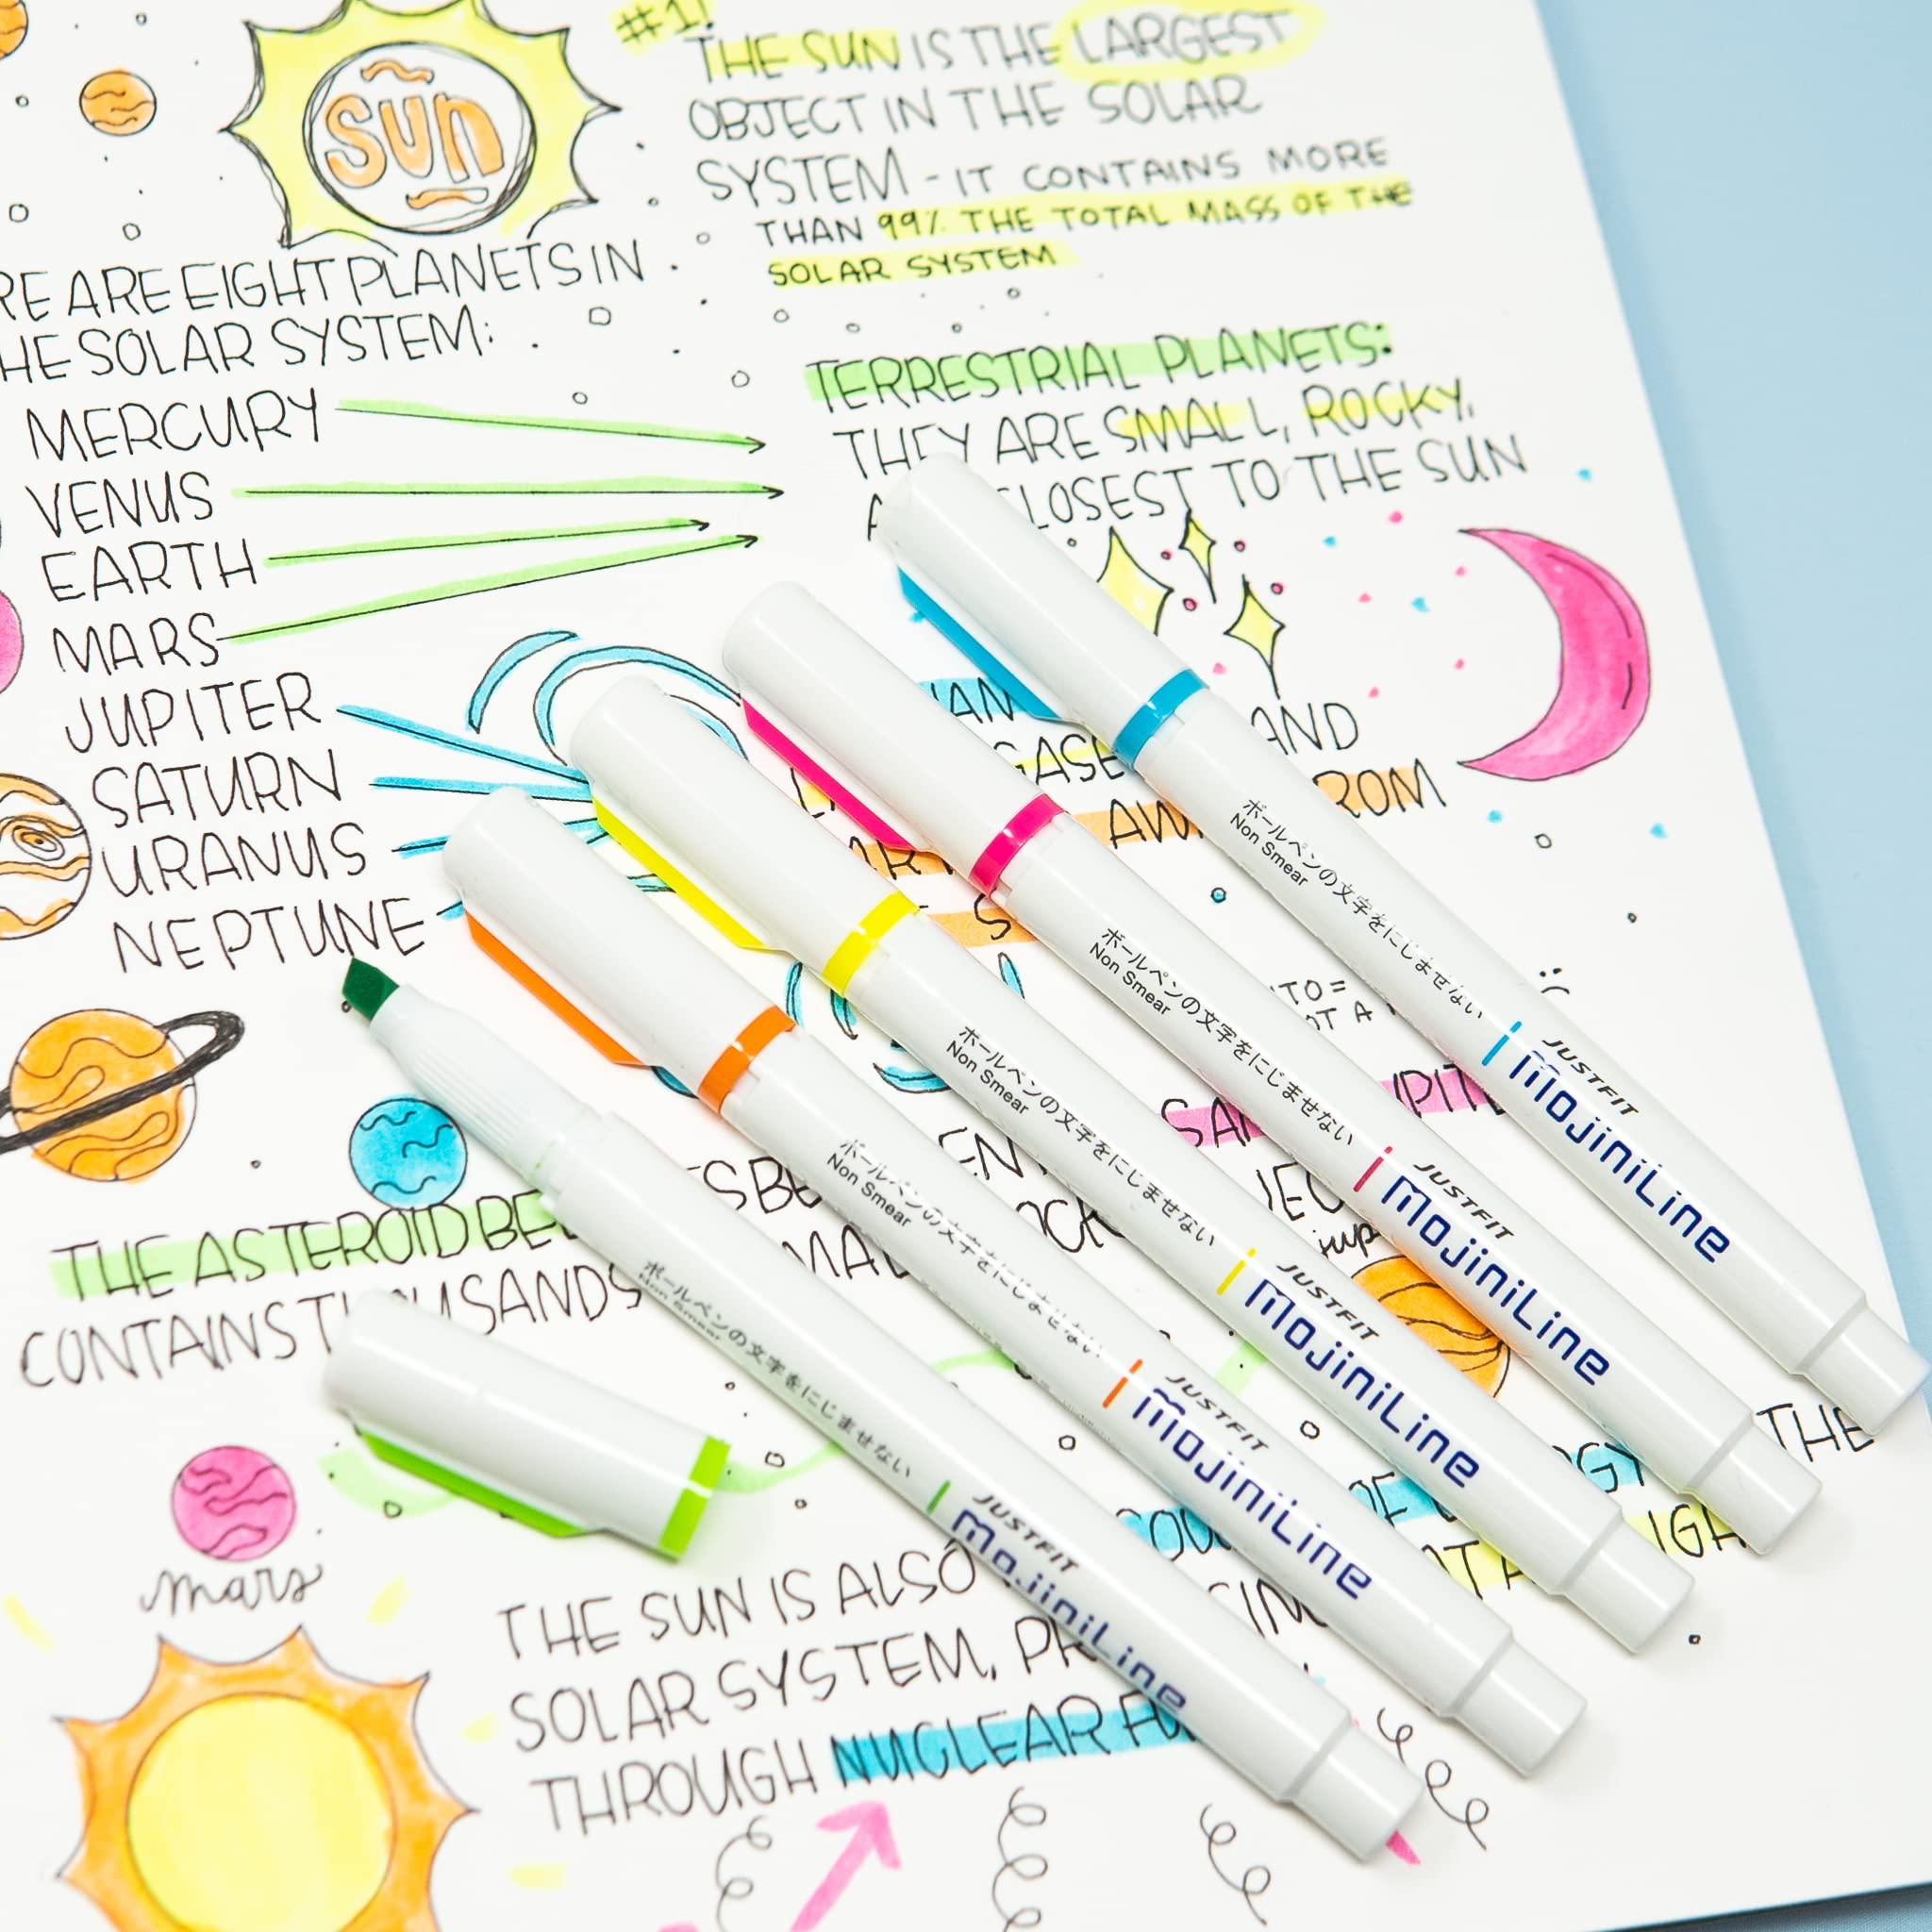 sun
#1!
THE SUN IS THE LARGEST
OBJECT IN THE SOLAR
SYSTEM - IT CONTAINS MORE
THAN 99% THE TOTAL MASS OF THE
SOLAR SYSTEM
ARE EIGHT PLANETS IN
SOLAR SYSTEM:
MERCURY
VENUS
EARTH
MARS
JUPITER
SATURN
URANUS
NEPTUNE
TERRESTRIAL PLANETS:
THEY ARE SMALL, ROCKY,
CLOSEST TO THE SUN
AND
THE ASTEROID
CONTAINS THOUSANDS
mars
THE SUN IS ALSO
SOLAR SYSTEM,
THROUGH NUCLEAR
THE
ボールペンの文字をにじませない
Non Smear
JUSTFIT
MojiniLine
ボールペンの文字をにじませない
Non Smear
JUSTFIT
MojiniLine
ボールペンの文字をにじませない
Non Smear
JUSTFIT
MojiniLine
ボールペンの文字をにじませない
Non Smear
JUSTFIT
MojiniLine
ボールペンの文字をにじませない
Non Smear
JUSTFIT
MojiniLine